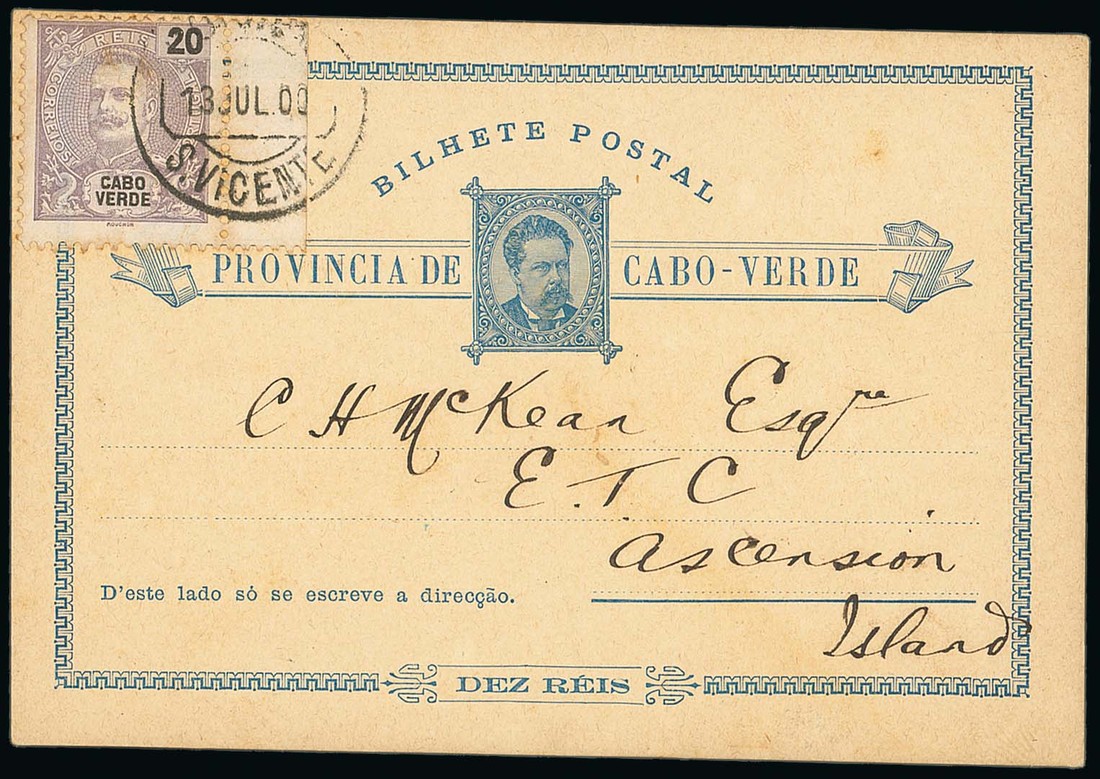 REIS 20
CORREIOS
CABO
VERDE
MOUCHON
13 JUL.00
S.VICENTE
BILHETE POSTAL
PROVINCIA DE CABO-VERDE
C H McKean Esqre
E. T. C.
Ascension
Island
D'este lado só se escreve a direcção.
DEZ RÉIS